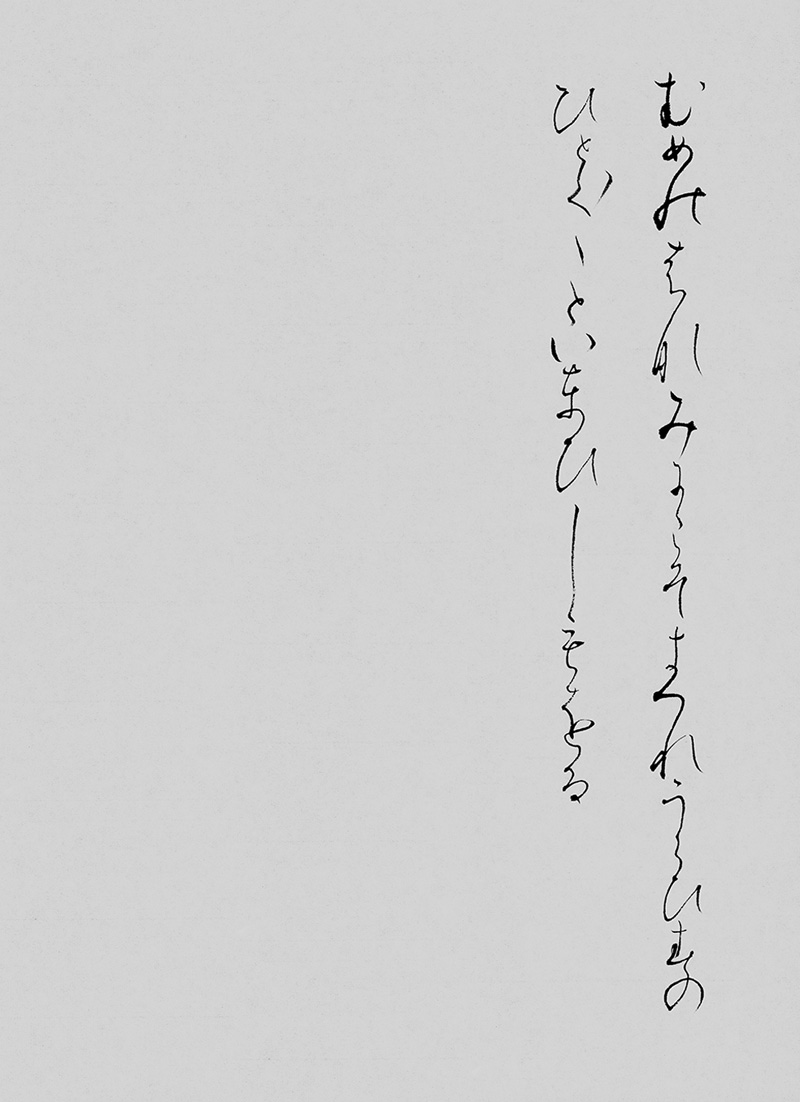 むめのはなみにこそきつれうくひすの
ひとく〳〵といとひしもをる